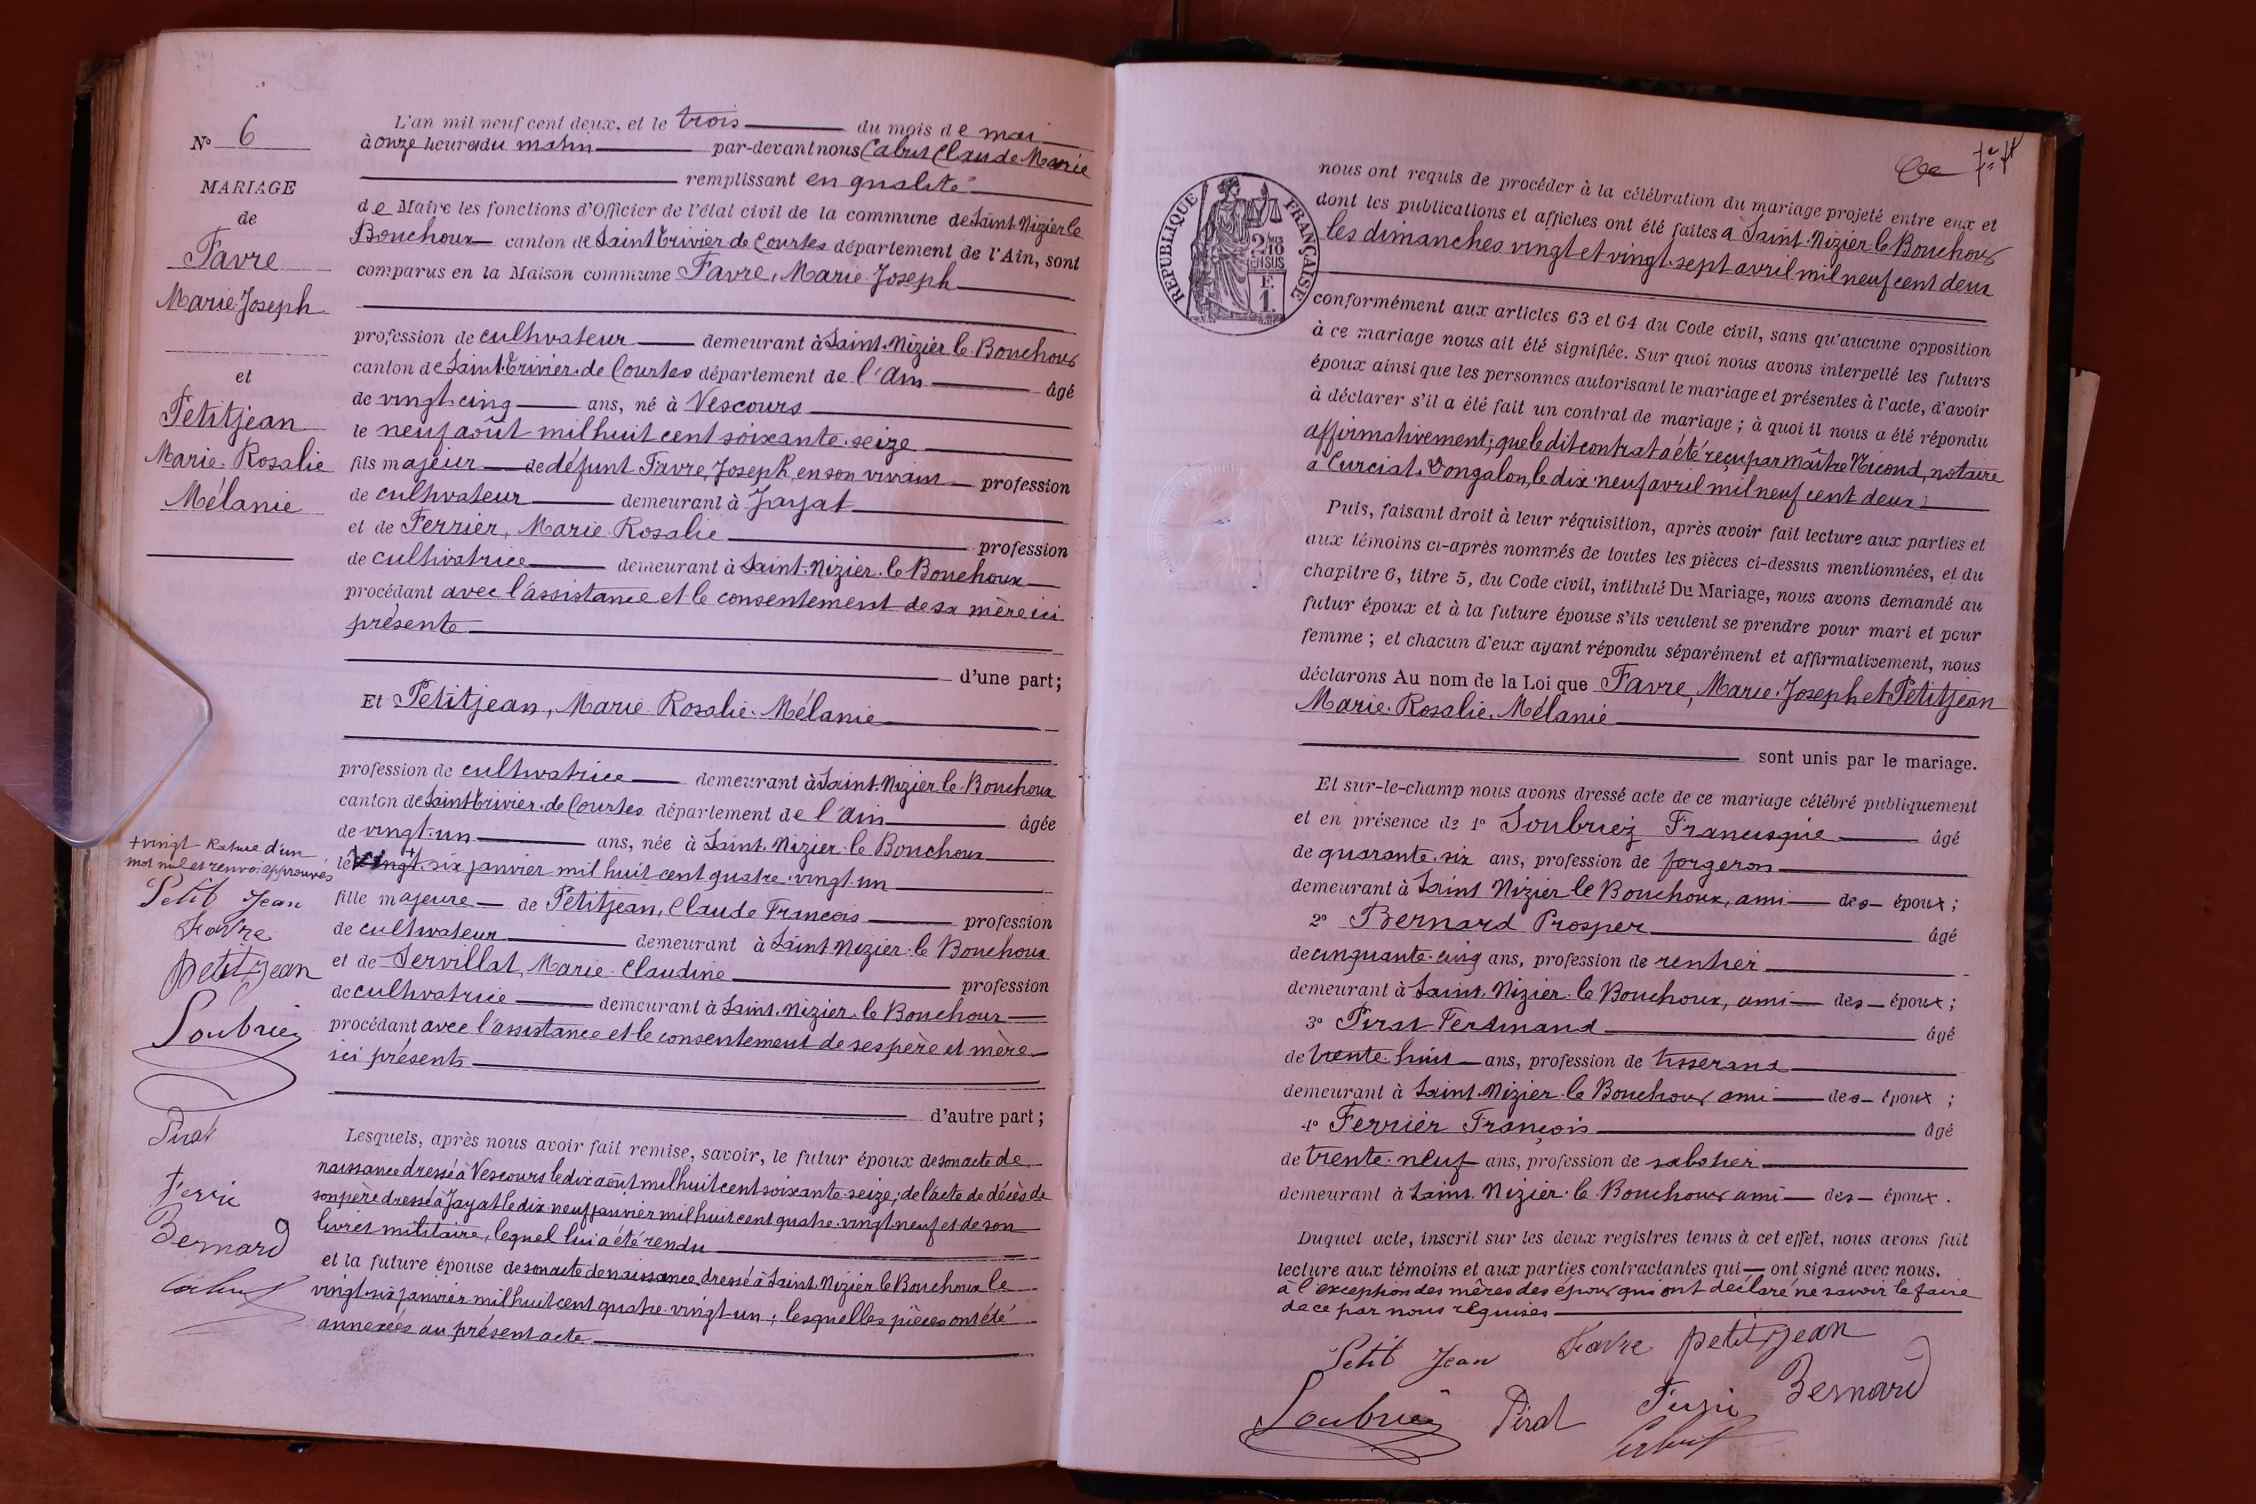 N° 6
MARIAGE
de
Favre
Marie Joseph
et
Petitjean
Marie. Rosalie
Mélanie
L'an mil neuf cent deux, et le trois du mois de mai
à onze heures du matin par-devant nous Cabut Claude Marie
remplissant en qualité
de Maire les fonctions d'Officier de l'état civil de la commune de Saint-Nizier le
Bouchoux canton de Saint Trivier de Courtes département de l'Ain, sont
comparus en la Maison commune Favre, Marie Joseph
profession de cultivateur demeurant à Saint-Nizier le Bouchoux
canton de Saint-Trivier-de Courtes département de l'Ain âgé
de vingt-cinq ans, né à Vescours
le neuf août mil huit cent soixante-seize
fils majeur de défunt Favre, Joseph, en son vivant profession
de cultivateur demeurant à Jayat
et de Ferrier, Marie Rosalie profession
de cultivatrice demeurant à Saint-Nizier-le Bouchoux
procédant avec l'assistance et le consentement de sa mère ici
présente
d'une part;
Et Petitjean, Marie Rosalie Mélanie
profession de cultivatrice demeurant à Saint-Nizier le Bouchoux
canton de Saint Trivier-de Courtes département de l'Ain âgée
de vingt-un ans, née à Saint-Nizier-le Bouchoux
le vingt + six janvier mil huit cent quatre-vingt-un
fille majeure de Petitjean, Claude Francois profession
de cultivateur demeurant à Saint Nizier-le Bouchoux
et de Servillat, Marie Claudine profession
de cultivatrice demeurant à Saint-Nizier-le Bouchoux
procédant avec l'assistance et le consentement de ses père et mère
ici présents
d'autre part;
Lesquels, après nous avoir fait remise, savoir, le futur époux de son acte de
naissance dressé à Vescours le dix août mil huit cent soixante-seize; de l'acte de décès de
son père dressé à Jayat le dix-neuf janvier mil huit cent quatre-vingt neuf et de son
livret militaire, lequel lui a été rendu
et la future épouse de son acte de naissance dressé à Saint Nizier le Bouchoux le
vingt-six janvier mil huit cent quatre-vingt-un; lesquelles pièces ont été
annexées au présent acte
+ vingt - Rature d'un
mot nul et renvoi approuvés
Petit Jean
Favre
petitjean
Soubriez
Pirat
Ferrie
Bernard
Cabut
RÉPUBLIQUE FRANÇAISE
2/10
EN SUS
E.
1.
nous ont requis de procéder à la célébration du mariage projeté entre eux et
dont les publications et affiches ont été faites à Saint-Nizier-le Bouchoux
les dimanches vingt et vingt-sept avril mil neuf cent deux
conformément aux articles 63 et 64 du Code civil, sans qu'aucune opposition
à ce mariage nous ait été signifiée. Sur quoi nous avons interpellé les futurs
époux ainsi que les personnes autorisant le mariage et présentes à l'acte, d'avoir
à déclarer s'il a été fait un contrat de mariage; à quoi il nous a été répondu
affirmativement; que le dit contrat a été reçu par maître Nicoud, notaire
à Curciat-Dongalon, le dix-neuf avril mil neuf cent deux
Puis, faisant droit à leur réquisition, après avoir fait lecture aux parties et
aux témoins ci-après nommés de toutes les pièces ci-dessus mentionnées, et du
chapitre 6, titre 5, du Code civil, intitulé Du Mariage, nous avons demandé au
futur époux et à la future épouse s'ils veulent se prendre pour mari et pour
femme; et chacun d'eux ayant répondu séparément et affirmativement, nous
déclarons Au nom de la Loi que Favre, Marie-Joseph et Petitjean
Marie-Rosalie-Mélanie
sont unis par le mariage.
Et sur-le-champ nous avons dressé acte de ce mariage célébré publiquement
et en présence de 1° Soubriez Francisque âgé
de quarante-six ans, profession de forgeron
demeurant à Saint Nizier le Bouchoux, ami des époux;
2° Bernard Prosper âgé
de cinquante-cinq ans, profession de rentier
demeurant à Saint-Nizier le Bouchoux, ami des époux;
3° Pirat Ferdinand âgé
de trente-huit ans, profession de tisserand
demeurant à Saint-Nizier-le Bouchoux ami des époux;
4° Ferrier François âgé
de trente-neuf ans, profession de sabotier
demeurant à Saint-Nizier-le-Bouchoux ami des époux.
Duquel acte, inscrit sur les deux registres tenus à cet effet, nous avons fait
lecture aux témoins et aux parties contractantes qui ont signé avec nous.
à l'exception des mères des époux qui ont déclaré ne savoir le faire
de ce par nous requises
Petit Jean Favre petitjean
Soubriez Pirat Ferrie Bernard
Cabut